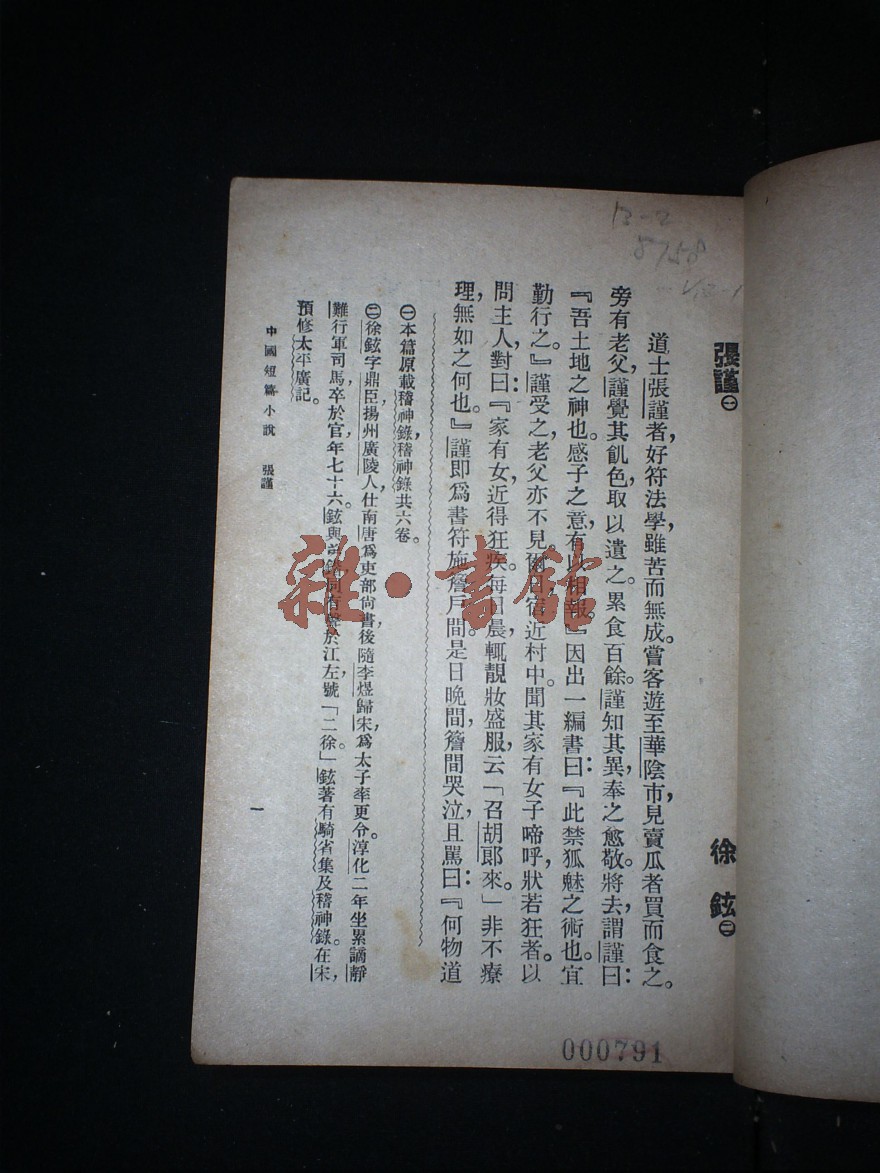 張謹㊀
徐鉉㊁
道士張謹者，好符法，學雖苦而無成。嘗客遊至華陰市，見賣瓜者，買而食之。
旁有老父，謹覺其飢色，取以遺之。累食百餘。謹知其異，奉之愈敬。將去，謂謹曰：
『吾土地之神也。感子之意，有以相報。』因出一編書曰：『此禁狐魅之術也。宜
勤行之。』謹受之，老父亦不見。爾日，宿近村中，聞其家有女子啼呼，狀若狂者。以
問主人，對曰：『家有女，近得狂疾，每日晨，輒靚妝盛服，云「召胡郎來」。非不療
理，無如之何也。』謹卽爲書符，施簷戶間。是日晚間，簷間哭泣且罵曰：『何物道
㊀本篇原載稽神錄，稽神錄共六卷。
㊁徐鉉字鼎臣，揚州廣陵人，仕南唐爲吏部尚書，後隨李煜歸宋，爲太子率更令。淳化二年坐累謫靜
難行軍司馬，卒於官，年七十六。鉉與弟鍇同有聲於江左，號「二徐」。鉉著有騎省集及稽神錄。在宋，
預修太平廣記。
中國短篇小說　張謹
一
13-2
8758
000791
雜·書館